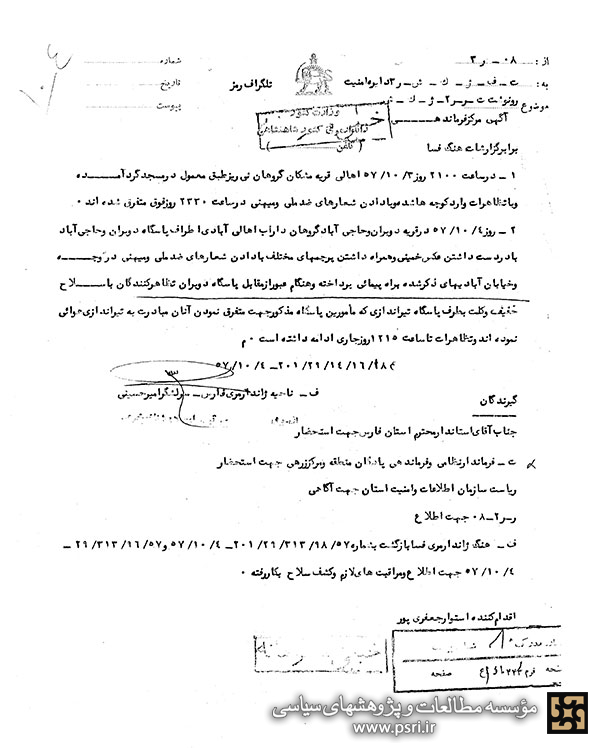 از : ۰۸ ـ ر ۳
شماره
به : ت ـ ف ـ ژ ـ ك ـ ش ـ ر ۳ دایره امنیت
تلگراف رمز
تاریخ
رونوشت
موضوع
پیوست
آگهی مرکز فرماندهـــی
وزارت کشور
ژاندارمری کشور شاهنشاهی
برابر گزارشات هنگ فسا
۱ ـ در ساعت ۲۱۰۰ روز ۵۷/۱۰/۳ اهالی قریه مشکان گروهان نی ریز طبق معمول در مسجد گرد آمـــده
وبا تظاهرات وارد کوچه ها شده وبا دادن شعارهای ضد ملی ومیهنی در ساعت ۲۳۳۰ روز فوق متفرق شده اند ۰
۲ ـ روز ۵۷/۱۰/۴ در قریه دوبران وحاجی آباد گروهان داراب اهالی آبادی اطراف پاسگاه دوبران وحاجی آباد
با در دست داشتن عکس خمینی وهمراه داشتن پرچمهای مختلف با دادن شعارهای ضد ملی ومیهنی در کوچــه
وخیابان آبادیهای ذکر شده براه پیمائی پرداخته وهنگام عبور از مقابل پاسگاه دوبران تظاهر کنندگان با ســلاح
خفیف وکلت بطرف پاسگاه تیراندازی که مأمورین پاسگاه مذکور جهت متفرق نمودن آنان مبادرت به تیراندازی هوائی
نموده اند وتظاهرات تا ساعت ۱۲۱۵ روز جاری ادامه داشته است ۰ م
۲۰۱/۲۹/۱۴/۱۶/۹۸۴ ـ ۵۷/۱۰/۴
ف ـ ناحیه ژاندارمری فارس ـ سرلشگر امیر حسینی
گیرندگان
جناب آقای استاندار محترم استان فارس جهت استحضار
ت ـ فرماندار نظامی وفرماندهی پادگان منطقه ومرکز زرهی جهت استحضار
ریاست سازمان اطلاعات وامنیت استان جهت آگاهی
ر ـ ر ۲ ـ ۰۸ جهت اطلاع
ف ـ هنگ ژاندارمری فسا بازگشت بشماره ۲۰۱/۲۹/۳۱۳/۹۸/۵۷ ـ ۵۷/۱۰/۴ و ۲۹/۳۱۳/۱۶/۵۷ ـ
۵۷/۱۰/۴ جهت اطلاع ومراقبت های لازم وکشف سلاح بکار رفته ۰
اقدام کننده استوار جعفری پور
صفحه
مؤسسه مطالعات و پژوهشهای سیاسی
www.psri.ir